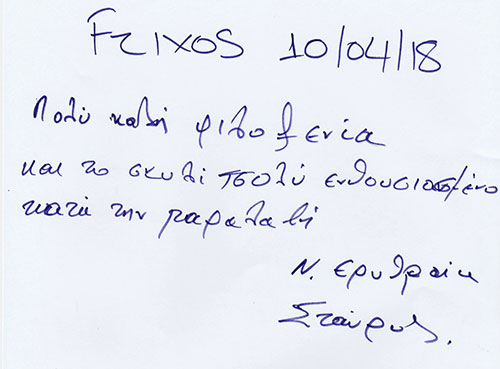 FRIXOS 10/04/18
Πολύ καλή φιλοξενία
και το σκυλί πολύ ενθουσιασμένο
κατά την παραλαβή
Ν. Ερυθραία
Σταύρος.